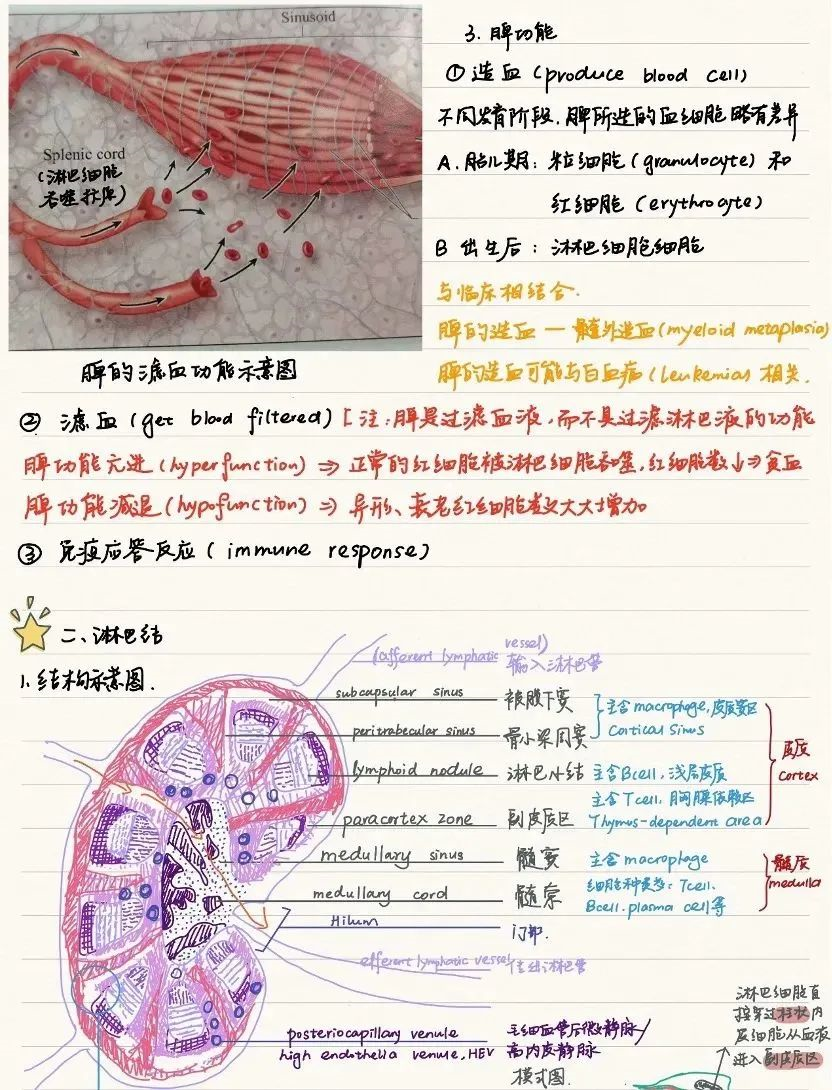 Sinusoid
Splenic cord
(淋巴细胞
吞噬抗原)
脾的滤血功能示意图
3. 脾功能
① 造血 (produce blood cell)
不同发育阶段, 脾所造的血细胞略有差异
A. 胎儿期: 粒细胞 (granulocyte) 和
红细胞 (erythrocyte)
B 出生后: 淋巴细胞细胞
与临床相结合.
脾的造血 — 髓外造血 (myeloid metaplasia)
脾的造血可能与白血病 (leukemias 相关.
② 滤血 (get blood filtered) [注: 脾是过滤血液, 而不具过滤淋巴液的功能
脾功能亢进 (hyperfunction) ⇒ 正常的红细胞被淋巴细胞吞噬, 红细胞数↓⇒贫血
脾功能减退 (hypofunction) ⇒ 异形、衰老红细胞数大大增加
③ 免疫应答反应 (immune response)
二、淋巴结
1. 结构示意图.
(afferent lymphatic vessel) 输入淋巴管
subcapsular sinus 被膜下窦
peritrabecular sinus 骨小梁周窦
主含 macrophage, 皮质窦区
Cortical sinus
lymphoid nodule 淋巴小结 主含Bcell, 浅层皮质
paracortex zone 副皮质区
主含Tcell, 胸腺依赖区
Thymus-dependent area
皮质
cortex
medullary sinus 髓窦 主含 macrophage
medullary cord 髓索
细胞种类多: Tcell.
Bcell. plasma cell等
髓质
medulla
Hilum 门部.
efferent lymphatic vessel 输出淋巴管
posteriocapillary venule
high endothelia venule, HEV
毛细血管后微静脉/
高内皮静脉
模式图.
淋巴细胞直
接穿过柱状内
皮细胞从血液
进入副皮质区